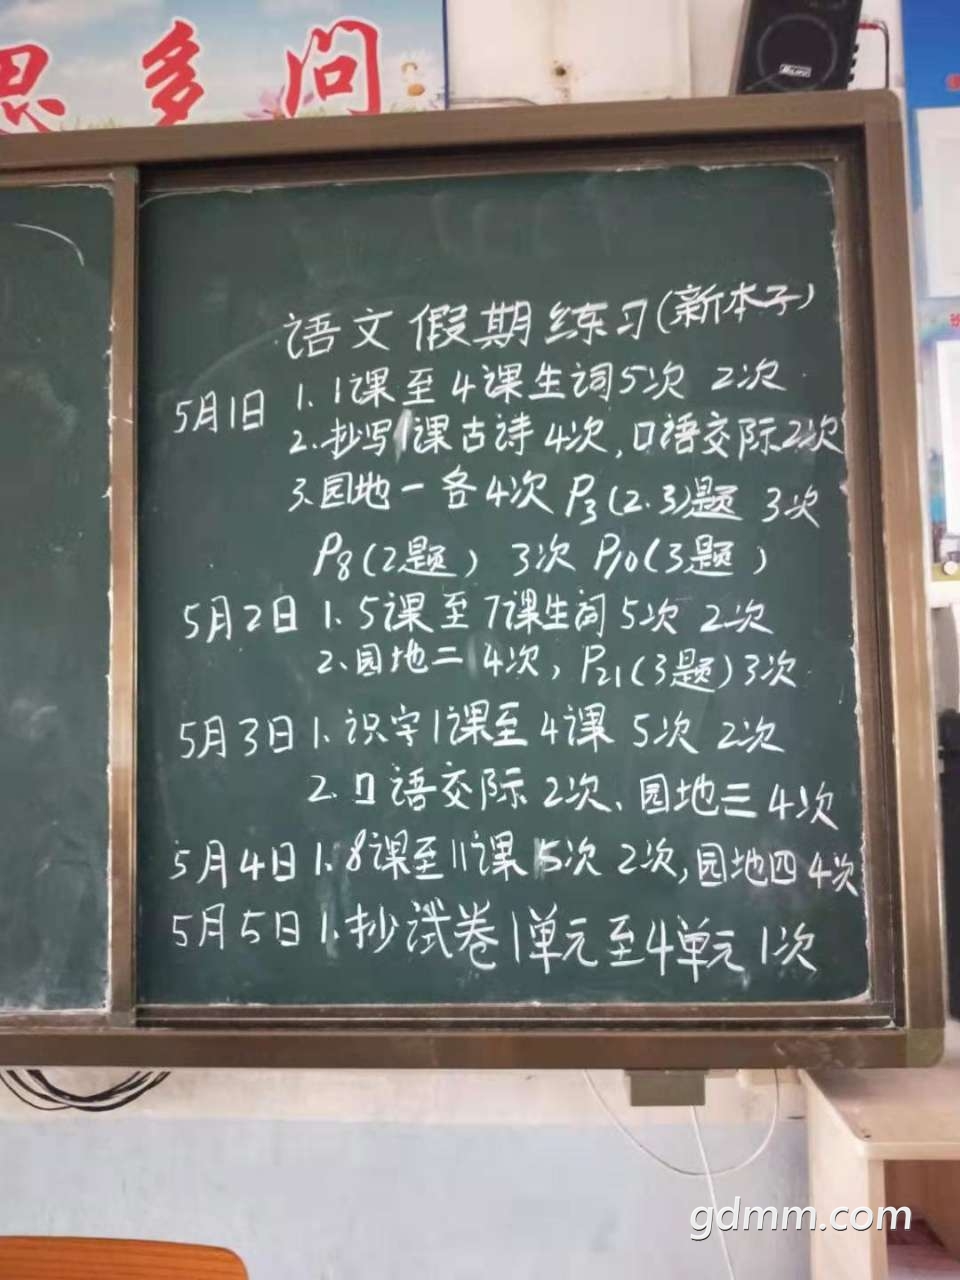 思多问
语文假期练习(新本子)
5月1日 1. 1课至4课生词5次 2次
2.抄写1课古诗4次,口语交际2次
3.园地一各4次 P3(2.3)题 3次
P8(2题) 3次 P10(3题)
5月2日 1.5课至7课生词5次 2次
2.园地二 4次, P21(3题)3次
5月3日 1.识字1课至4课 5次 2次
2.口语交际2次、园地三4次
5月4日 1.8课至11课 5次 2次,园地四4次
5月5日 1.抄试卷1单元至4单元1次
gdmm.com